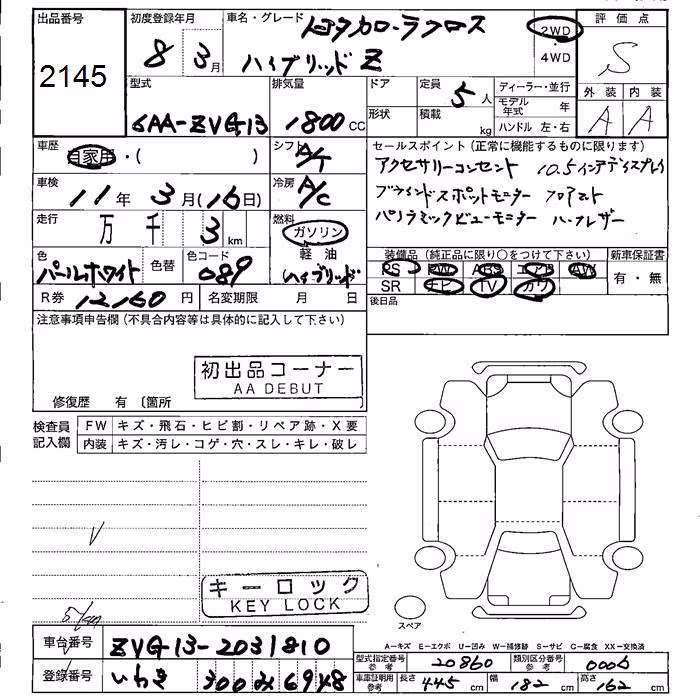 出品番号
2145
初度登録年月
8 3月
車名・グレード
トヨタカローラクロス
ハイブリッド Z
2WD
・
4WD
評価点
S
外装 内装
A A
型式
6AA-ZVG13
排気量
1800 CC
ドア
形状
定員
5人
積載
kg
ディーラー・並行
モデル年式 年
ハンドル 左・右
車歴
自家用・( )
シフト
A/T
車検
11年 3月(16日)
冷房
A/C
走行
万 千 3 km
燃料
ガソリン
軽油
(ハイブリッド)
色
パールホワイト
色替
色コード
089
R券 12,160 円
名変期限 月 日
セールスポイント(正常に機能するものに限ります)
アクセサリーコンセント 10.5インチディスプレイ
ブラインドスポットモニター フロアマット
パノラミックビューモニター ハーフレザー
装備品(純正品に限り○をつけて下さい) 新車保証書
PS PW ABS エアB AW
SR ナビ TV カワ
有・無
後日品
注意事項申告欄(不具合内容等は具体的に記入して下さい)
初出品コーナー
AA DEBUT
修復歴 有 (箇所
検査員
記入欄
FW キズ・飛石・ヒビ割・リペア跡・X要
内装 キズ・汚レ・コゲ・穴・スレ・キレ・破レ
キーロック
KEY LOCK
スペア
A−キズ E−エクボ U−凹み W−補修跡 S−サビ C−腐食 XX−交換済
車台番号 ZVG13-2031810
登録番号 いわき 300 み 6948
型式指定番号 参考 20860
類別区分番号 参考 0006
車庫証明用 参考 長さ 445 cm 幅 182 cm 高さ 162 cm